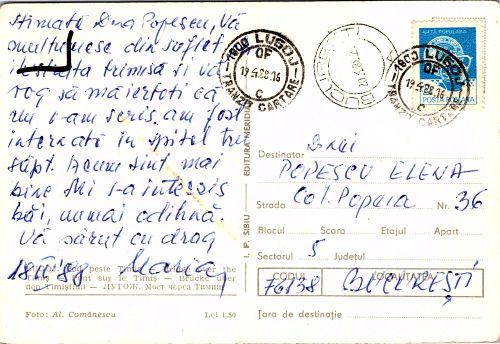 Stimată Dna Popescu, Vă
mulțumesc din suflet
ilustrata trimisă și vă
rog să mă iertați că
nu v-am scris. am fost
internată în spital trei
săpt. Acum sînt mai
bine. Mi s-a interzis
băi, numai odihnă.
Vă sărut cu drag
Maria
pod peste Timiș
Pont sur le Timiș — Brücke über
den Timișfluß — ЛУГОЖ. Мост через Тимиш
Foto: Al. Comănescu
Lei 1,50
I. P. SIBIU EDITURA MERIDIANE
1800 LUGOJ
OF
19.5.88.16
C
TRANZIT CARTARE
BUCUREȘTI
1800 LUGOJ
OF
19.5.88.16
C
TRANZIT CARTARE
POSTA ROMANA
Destinatar Dnei
POPESCU ELENA
Strada Nr. 36
Blocul Scara Etajul Apart
Sectorul 5 Județul
CODUL LOCALITATEA
76138 BUCUREȘTI
Țara de destinație